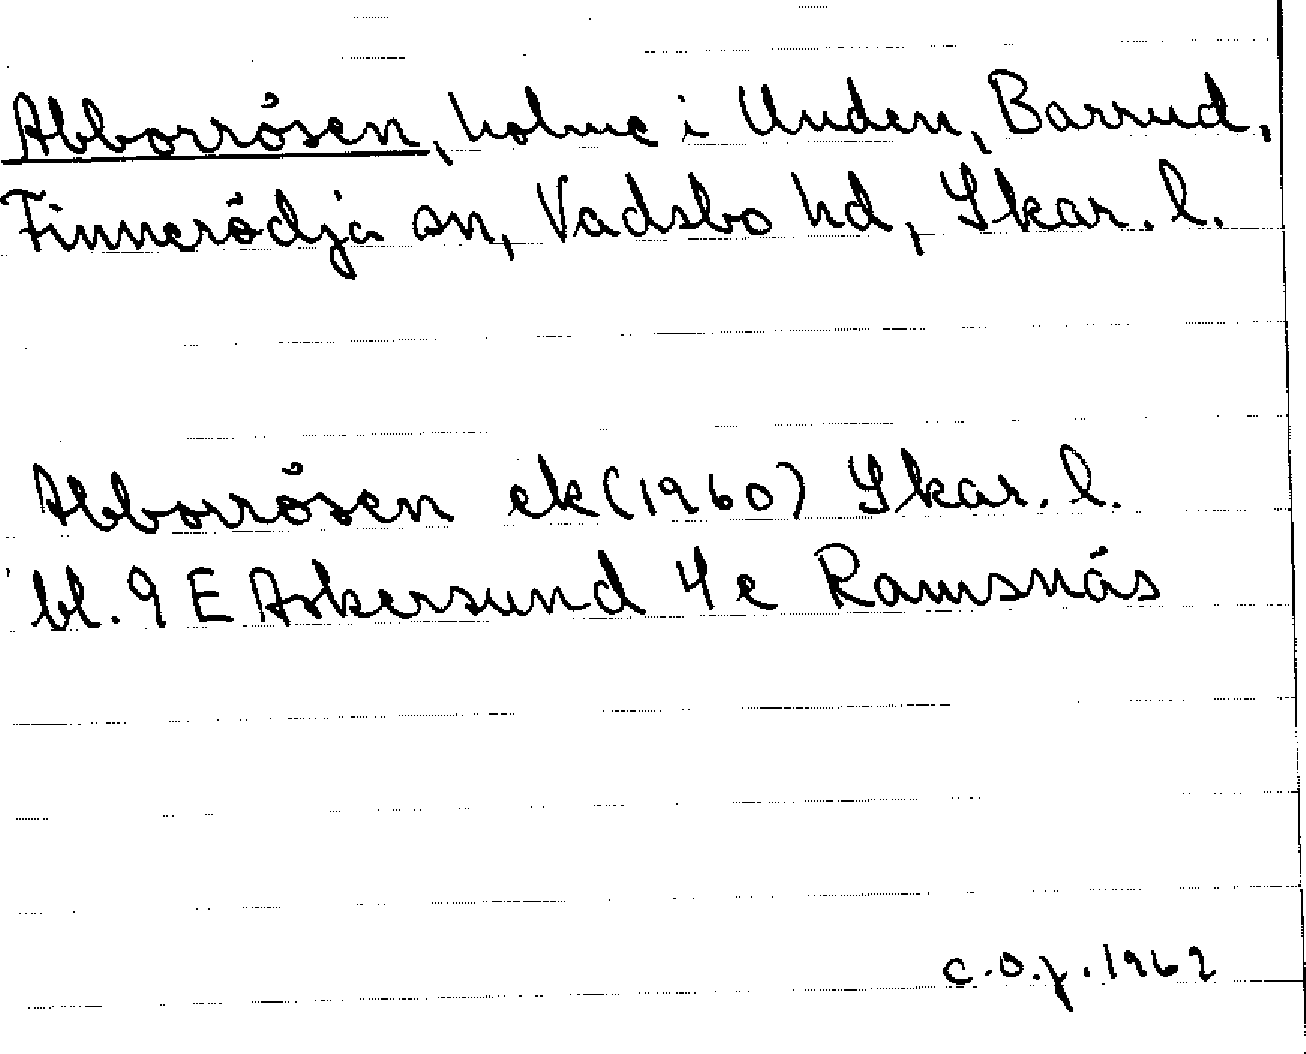 Abborrösen, holme i Unden, Barrud,
Finnerödja sn, Vadsbo hd, Skar. l.
Abborrösen ek (1960) Skar. l.
bl. 9 E Askersund 4 e Ramsnäs
C.O.J. 1962